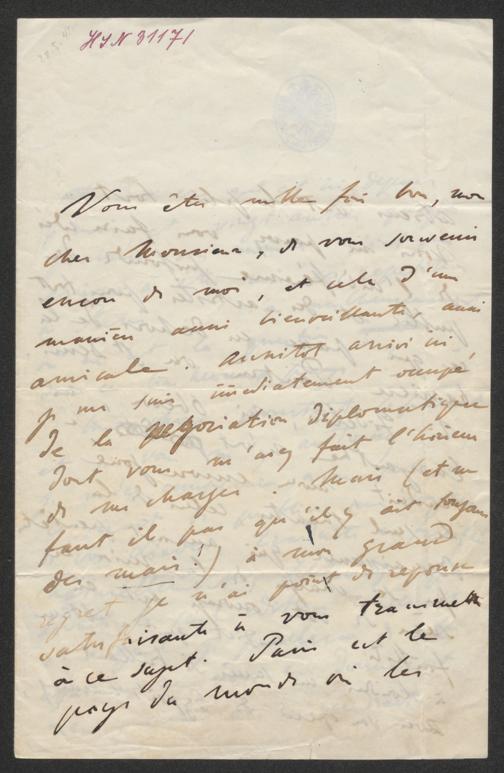 HIN 31171
Vous êtes mille fois bon, mon
cher Monsieur, de vous souvenir
encore de moi, et cela d'une
manière aussi bienveillante, aussi
amicale. Aussitot arrivé ici,
je me suis immediatement occupé
de la negociation diplomatique
dont vous m'avez fait l'honneur
de me charger. Mais (et ne
faut il pas qu'il y ait toujours
des mais!) à mon grand
regret je n'ai point de reponse
satisfaisante à vous transmettre
à ce sujet. Paris est le
pays du monde où les